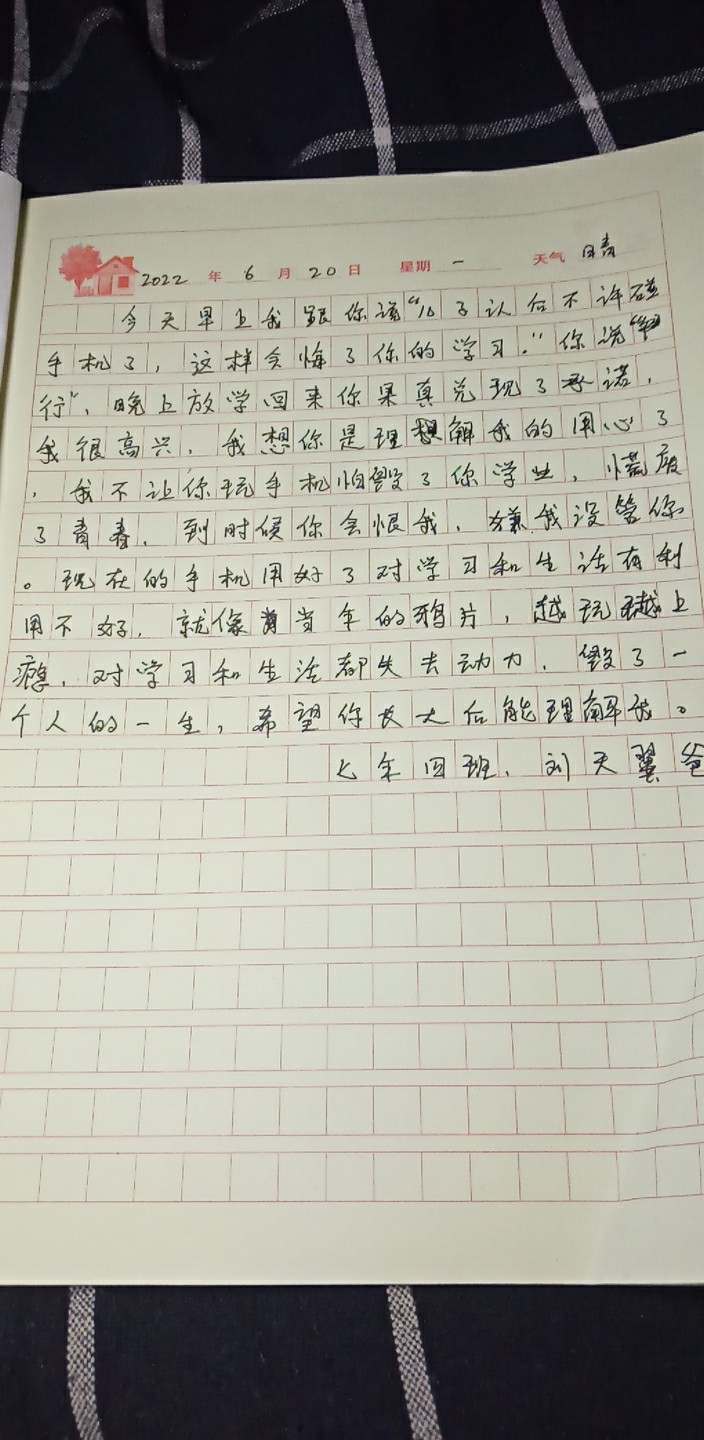 2022 年 6 月 20 日 星期 一 天气 晴
今天早上我跟你讲“儿子认后不许碰
手机了，这样会悔了你的学习.”你说“
行”、晚上放学回来你果真兑现了承诺，
我很高兴．我想你是理解我的用心了
．我不让你玩手机怕毁了你学业，慌废
了青春．到时候你会恨我．嫌我没管你
。现在的手机用好了对学习和生活有利
用不好．就像当年的鸦片，越玩越上
瘾．对学习和生活都失去动力．毁了一
个人的一生，希望你长大后能理解我。
七年四班．刘天翼爸